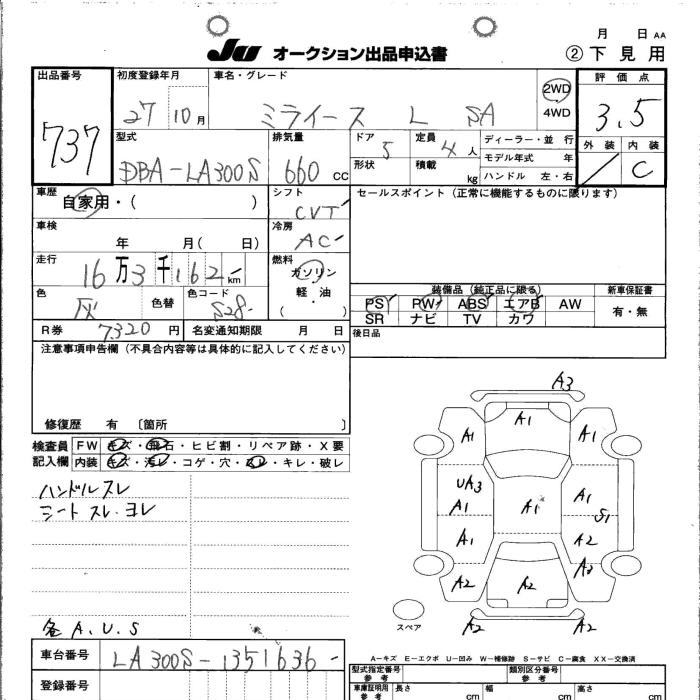 JU オークション出品申込書
月 日 AA
② 下見用
出品番号
737
初度登録年月
27 10月
車名・グレード
ミライース L SA
2WD
4WD
評価点
3.5
外装 内装
/ C
型式
DBA-LA300S
排気量
660 cc
ドア
5
定員
4 人
形状
積載
kg
ディーラー・並行
モデル年式 年
ハンドル 左・右
車歴
自家用・( )
シフト
CVT
車検
年 月( 日)
冷房
AC
走行
16万3千162km
燃料
ガソリン
軽・油
( )
色
灰
色替
色コード
S28
R券 7320円
名変通知期限 月 日
セールスポイント(正常に機能するものに限ります)
装備品(純正品に限る)
PS PW ABS エアB AW
SR ナビ TV カワ
新車保証書
有・無
後日品
注意事項申告欄(不具合内容等は具体的に記入してください)
修復歴 有 〔箇所 〕
検査員
記入欄
FW キズ・飛石・ヒビ割・リペア跡・X要
内装 キズ・汚レ・コゲ・穴・スレ・キレ・破レ
ハンドルスレ
シートスレ・ヨレ
各A.U.S
A3
A1
A1 A1
UA3
A1 A1 A1
S1
A1 A2
A2 A2 A2
A2 A2
スペア
A-キズ E-エクボ U-凹み W-補修跡 S-サビ C-腐食 XX-交換済
車台番号
LA300S-1351636
登録番号
型式指定番号
参考
類別区分番号
参考
車庫証明用
参考
長さ cm
幅 cm
高さ cm